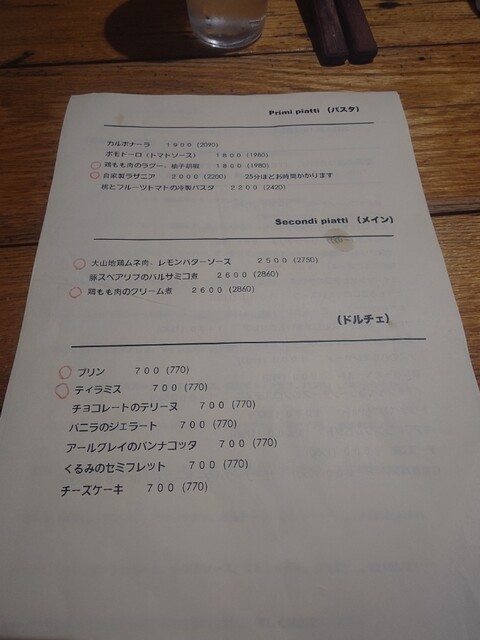 Primi piatti （パスタ）
カルボナーラ 1900 (2090)
ポモトーロ（トマトソース） 1800 (1980)
鶏もも肉のラグー、柚子胡椒 1800 (1980)
自家製ラザニア 2000 (2200) 25分ほどお時間かかります
桃とフルーツトマトの冷製パスタ 2200 (2420)
Secondi piatti （メイン）
大山地鶏ムネ肉、レモンバターソース 2500 (2750)
豚スペアリブのバルサミコ煮 2600 (2860)
鶏もも肉のクリーム煮 2600 (2860)
（ドルチェ）
プリン 700 (770)
ティラミス 700 (770)
チョコレートのテリーヌ 700 (770)
バニラのジェラート 700 (770)
アールグレイのパンナコッタ 700 (770)
くるみのセミフレット 700 (770)
チーズケーキ 700 (770)